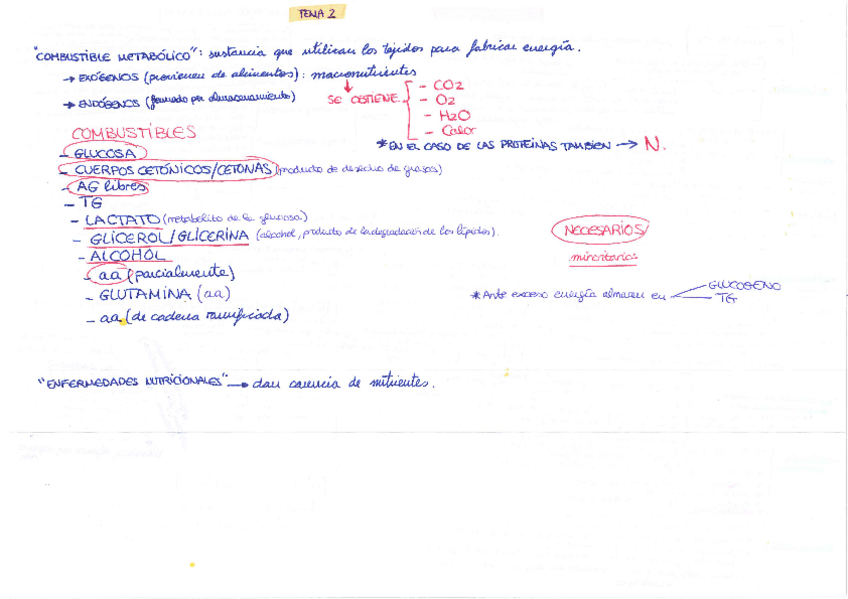 TEMA 2
"COMBUSTIBLE METABÓLICO": sustancia que utilizan los tejidos para fabricar energía.
→ EXÓGENOS (provienen de alimentos): macronutrientes
→ ENDÓGENOS (formado por almacenamiento)
SE OBTIENE
- CO2
- O2
- H2O
- Calor
* EN EL CASO DE LAS PROTEÍNAS TAMBIEN → N.
COMBUSTIBLES
- GLUCOSA
- CUERPOS CETÓNICOS/CETONAS (producto de desecho de grasas)
- AG libres
- TG
- LACTATO (metabolito de la glucosa)
- GLICEROL/GLICERINA (alcohol, producto de la degradación de los lípidos).
- ALCOHOL
- aa (parcialmente)
- GLUTAMINA (aa)
- aa (de cadena ramificada)
NECESARIOS/
minoritarios
* Ante exceso energía almacen en
GLUCOGENO
TG
"ENFERMEDADES NUTRICIONALES" → dan carencia de nutrientes.